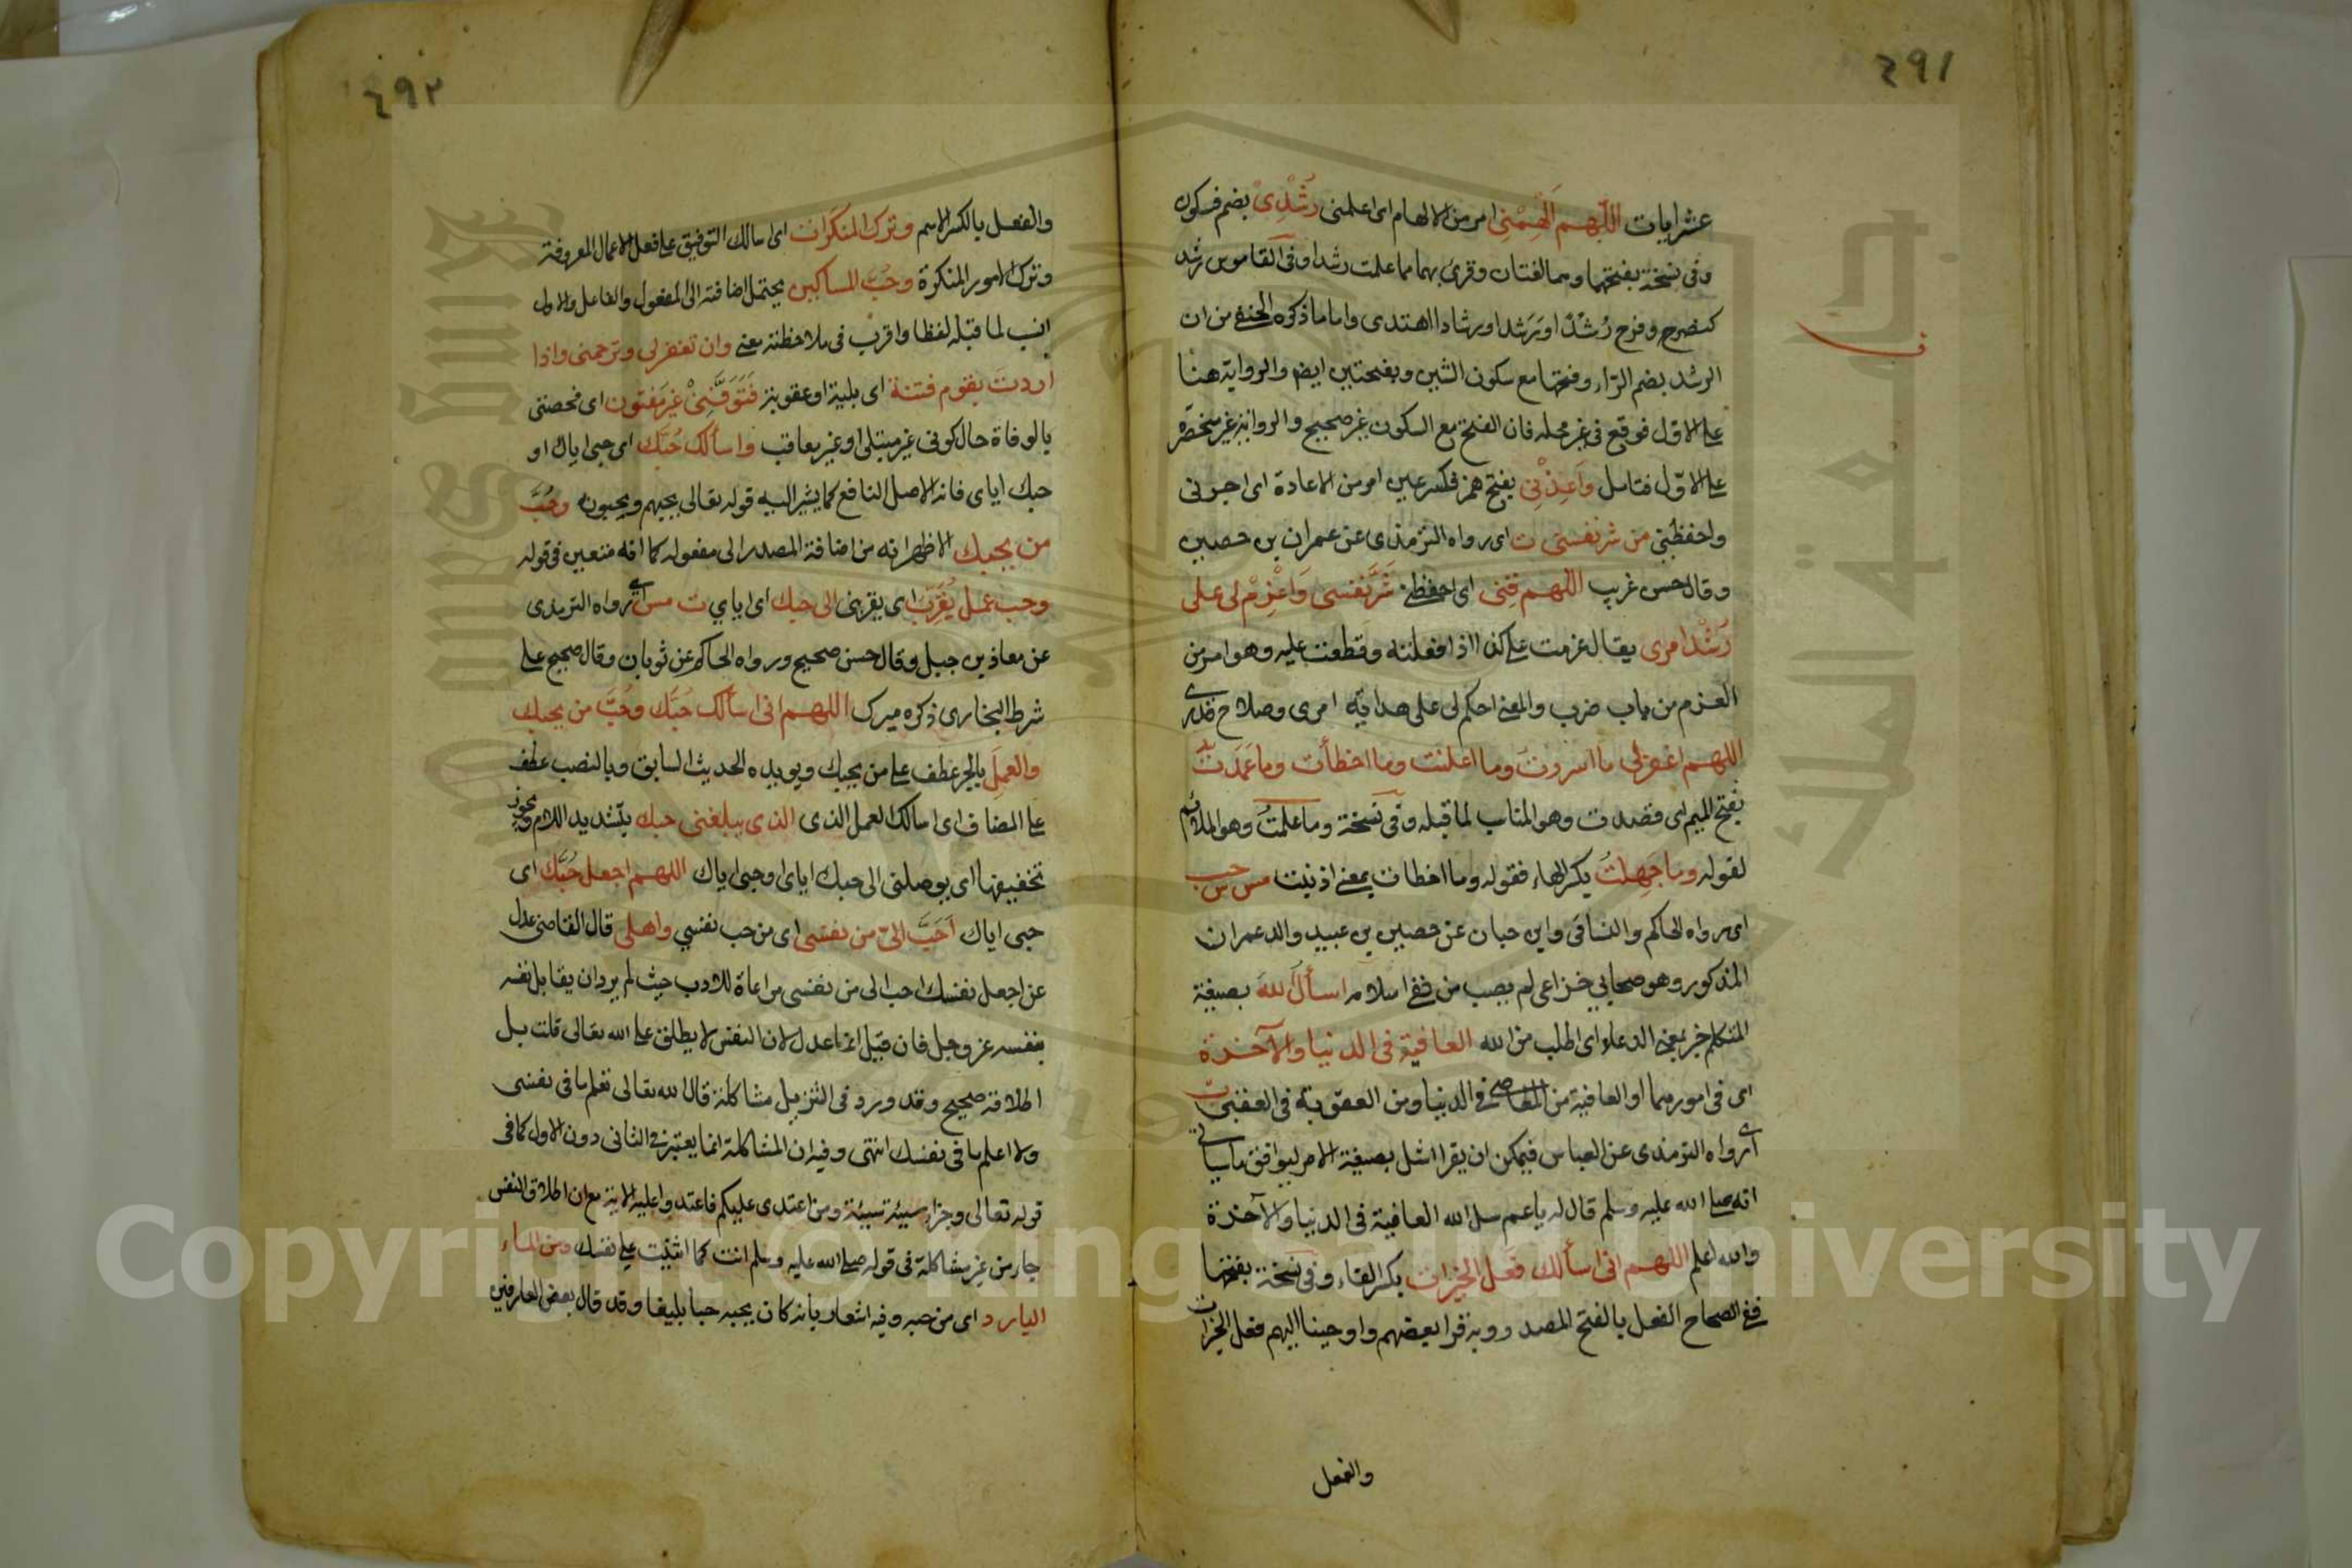 ٤٩١
عشرايات اللهم الهمني امر من الالهام اى اعلمنى رُشْدِىْ بضم فسكون
وفى نسخة بفتحهما وهما لغتان وقرئ بهما مما علمت رشدا وفى القاموس رشد
كنصر وفرح رُشْدً اورَشَد اورشادا اهتدى واما ماذكره الحنفى من ان
الرشد بضم الراء وفتحها مع سكون الشين وبفتحتين ايض والرواية هنا
على الاول فوقع فى غير محله فان الفتح مع السكون غير صحيح والرواية غير منحصرة
على الاوّل فتامل وَاَعِذْنِي بفتح همز فكسر عين امر من الاعاذة اى اجرنى
واحفظنى من شر نفسى ت اى رواه الترمذى عن عمران بن حصين
وقال حسن غريب اللهم قِنِى اى احفظنى شَرَّ نفسى وَاعْزِمْ لى على
رُشْد امرى يقال عزمت على كذا اذا فعلته وقطعت عليه وهو امر من
العزم من باب ضرب والمعنى احكم لى على هداية امرى وصلاح قدرى
اللهم اغفر لى ما اسررت وما اعلنت وما اخطأت وما عَمَدت
بفتح الميم اى قصدت وهو المناسب لما قبله وفى نسخة وما علمتُ وهو الملائم
لقوله وما جَهِلتُ بكسر الهاء فقوله وما اخطات بمعنى اذنبت مس س حب
اى رواه الحاكم والنسائى وابن حبان عن حصين بن عبيد والد عمران
المذكور وهو صحابي خزاعى لم يصب من نفى اسلامه اسأل الله بصيغة
المتكلم خبر بمعنى الدعاء اى اطلب من الله العافية فى الدنيا والآخرة
اى فى امورهما او العافية من المعاصى فى الدنيا ومن العقوبة فى العقبى ت
اى رواه الترمذى عن العباس فيمكن ان يقرا اسئل بصيغة الامر ليوافق ماسياتى
انه صلى الله عليه وسلم قال له ياعم سل الله العافية فى الدنيا والآخرة
والله اعلم اللهم انى اسألك فعل الخيرات بكسر الفاء وفى نسخة بفتحها
ففى الصحاح الفعل بالفتح المصدر وبه قرا بعضهم واوحينا اليهم فعل الخيرات
والفعل
٤٩٢
والفعل بالكسر الاسم وترك المنكرات اى اسالك التوفيق على فعل الاعمال المعروفة
وترك الامور المنكرة وحُبَّ المساكين يحتمل اضافته الى المفعول والفاعل والاول
انسب لما قبله لفظا واقرب فى ملاحظته معنى وان تغفر لى وترحمنى واذا
اردت بقوم فتنة اى بلية او عقوبة فَتَوَفَّنِىْ غير مفتون اى فخصنى
بالوفاة حال كونى غير مبتلى او غير معاقب واسألك حُبَّك اى حبى اياك او
حبك اياى فانه الاصل النافع كما يشير اليه قوله تعالى يحبهم ويحبونه وحُبَّ
من يحبك الاظهر انه من اضافة المصدر الى مفعوله كما انه متعين فى قوله
وحب عمل يُقَرِّبُ اى يقربنى الى حبك اى اياي ت مس اى رواه الترمذى
عن معاذ بن جبل وقال حسن صحيح ورواه الحاكم عن ثوبان وقال صحيح على
شرط البخارى ذكره ميرك اللهم انى اسألك حُبَّك وحُبَّ من يحبك
والعملِ بالجر عطف على من يحبك ويويده الحديث السابق وبالنصب عطف
على المضاف اى اسالك العمل الذى الذى يبلغنى حبك بتشديد اللام ويجوز
تخفيفها اى يوصلنى الى حبك اياى او حبى اياك اللهم اجعل حُبَّك اى
حبى اياك اَحَبَّ الىّ من نفسى اى من حب نفسي واهلى قال القاضى عدل
عن اجعل نفسك احب الى من نفسى مراعاة للادب حيث لم يرد ان يقابل نفسه
بنفسه عز وجل فان قيل انما عدل لان النفس لا يطلق على الله تعالى قلت بل
اطلاقه صحيح وقد ورد فى التنزيل مشاكلة قال الله تعالى تعلم ما فى نفسى
ولا اعلم ما فى نفسك انتهى وفيه ان المشاكلة انما يعتبر فى الثانى دون الاول كما فى
قوله تعالى وجزاء سيئة سيئة ومن اعتدى عليكم فاعتدوا عليه الاية مع ان اطلاق النفس
جار من غير مشاكلة فى قوله صلى الله عليه وسلم انت كما اثنيت على نفسك ومن الماء
البارد اى من حبه وفيه اشعار بانه كان يحبه حبا بليغا وقد قال بعض العارفين
Copyright © King Saud University